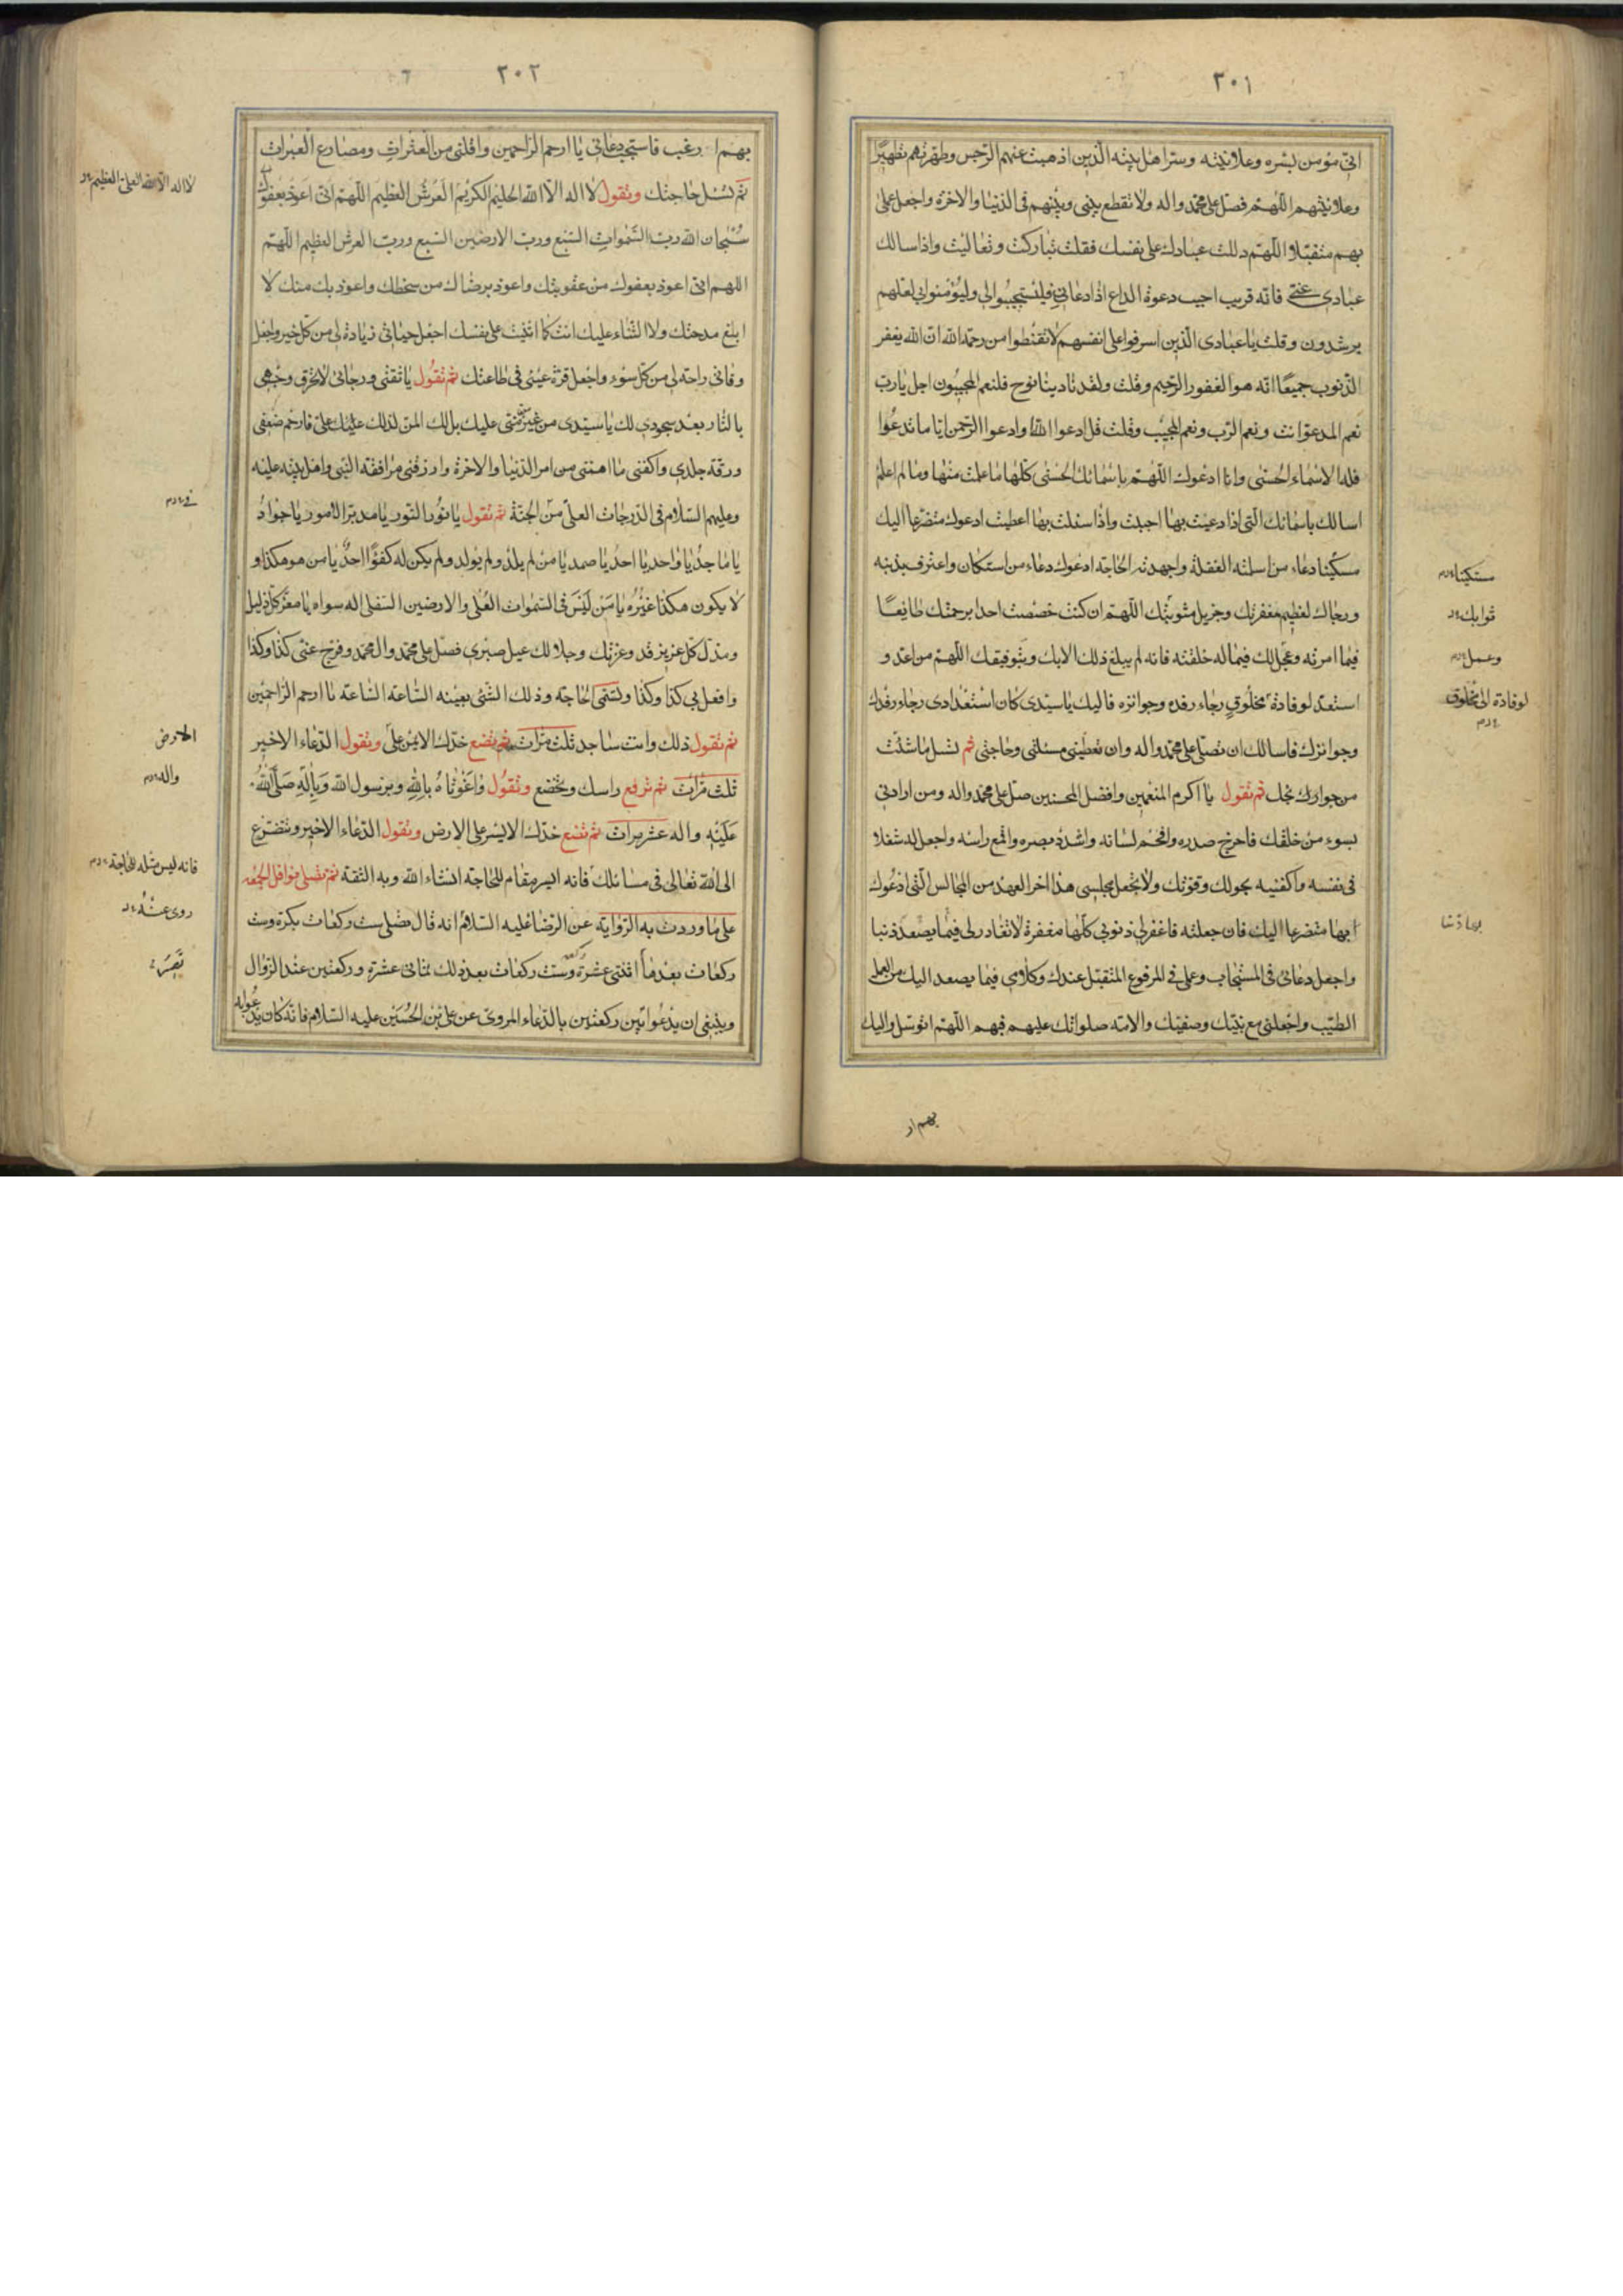 ٣٠١
اني مؤمن بسره وعلانيته وسر اهل بيته الذين اذهبت عنهم الرجس وطهرتهم تطهيرًا
وعلانيتهم اللهم فصل على محمد واله ولا تقطع بيني وبينهم في الدنيا والاخرة واجعل عملي
بهم متقبلا اللهم دللت عبادك على نفسك فقلت تباركت وتعاليت واذا سالك
عبادي عني فانه قريب اجيب دعوة الداع اذا دعاني فليستجيبوا لي وليؤمنوا بي لعلهم
يرشدون وقلت يا عبادي الذين اسرفوا على انفسهم لا تقنطوا من رحمة الله ان الله يغفر
الذنوب جميعًا انه هو الغفور الرحيم وقلت ولقد نادينا نوح فلنعم المجيبون اجل يا رب
نعم المدعو انت ونعم الرب ونعم المجيب وقلت قل ادعوا الله وادعوا الرحمن ايا ما تدعوا
فله الاسماء الحسنى وانا ادعوك اللهم باسمائك الحسنى كلها ما علمت منها وما لم اعلم
اسالك باسمائك التي اذا دعيت بها اجبت واذا سئلت بها اعطيت ادعوك متضرعا اليك
مسكينا دعاء من اسلمته الغفلة واجهدته الحاجة ادعوك دعاء من استكان واعترف بذنبه
ورجاك لعظيم مغفرتك وجزيل مثوبتك اللهم ان كنت خصصت احدا برحمتك طايعًا
فيما امرته وعجل لك فيما له خلقته فانه لم يبلغ ذلك الا بك وبتوفيقك اللهم من اعد و
استعد لوفادة مخلوق رجاء رفده وجوائزه فاليك يا سيدي كان استعدادي رجاء رفدك
وجوائزك فاسالك ان تصلي على محمد واله وان تعطيني مسئلتي وحاجتي ثم تسل ما شئت
من حوايجك ثم تقول يا اكرم المنعمين وافضل المحسنين صل على محمد واله ومن ارادني
بسوء من خلقك فاحرج صدره وافحم لسانه واشدد بصره واقمع راسه واجعل له شغلا
في نفسه واكفنيه بحولك وقوتك ولا تجعل مجلسي هذا اخر العهد من المجالس التي ادعوك
بها متضرعا اليك فان جعلته فاغفر لي ذنوبي كلها مغفرة لا تغادر لي فيما يصعد ذنبا
واجعل دعائي في المستجاب وعملي في المرفوع المتقبل عندك وكلامي فيما يصعد اليك من العمل
الطيب واجعلني مع نبيك وصفيك والائمة صلواتك عليهم فبهم اللهم اتوسل واليك
مستكينا
ثوابك
وعمل
لوفادة الى مخلوق
بهم ار
٣٠٢
بهم ارغب فاستجب دعائي يا ارحم الراحمين واقلني من العثرات ومصارع العبرات
ثم تسئل حاجتك وتقول لا اله الا الله الحليم الكريم العرش العظيم اللهم اني اعوذ بعفوك
سبحان الله رب السموات السبع ورب الارضين السبع ورب العرش العظيم اللهم
اللهم اني اعوذ بعفوك من عقوبتك واعوذ برضاك من سخطك واعوذ بك منك لا
ابلغ مدحتك ولا الثناء عليك انت كما اثنيت على نفسك اجعل حياتي زيادة لي من كل خير واجعل
وفاتي راحة لي من كل سوء واجعل قرة عيني في طاعتك ثم تقول يا ثقتي ورجائي لا تحرق وجهي
بالنار بعد سجودي لك يا سيدي من غير من مني عليك بل لك المن لذلك عليك علي فارحم ضعفي
ورقة جلدي واكفني ما اهمني من امر الدنيا والاخرة وارزقني مرافقة النبي واهل بيته عليه
وعليهم السلام في الدرجات العلى من الجنة ثم تقول يا نور النور يا مدبر الامور يا جواد
يا ماجد يا واحد يا احد يا صمد يا من لم يلد ولم يولد ولم يكن له كفوًا احد يا من هو هكذا و
لا يكون هكذا غيره يا من ليس في السموات العلى والارضين السفلى اله سواه يا معز كل ذليل
ومذل كل عزيز قد وعزتك وجلالك عيل صبري فصل على محمد وال محمد وفرج عني كذا وكذا
وافعل بي كذا وكذا وتسمي الحاجة وذلك الشئ بعينه الساعة الساعة يا ارحم الراحمين
ثم تقول ذلك وانت ساجد ثلث مرات ثم تضع خدك الايمن على وتقول الدعاء الاخير
ثلث مرات ثم ترفع راسك وتخضع وتقول واغوثاه بالله وبرسول الله وباله صلى الله
عليه واله عشر مرات ثم تضع خدك الايسر على الارض وتقول الدعاء الاخير وتتضرع
الى الله تعالى في مسائلك فانه ايسر مقام للحاجة انشاء الله وبه الثقة ثم تصلي نوافل الجمعة
على ما وردت به الرواية عن الرضا عليه السلام انه قال تصلي ست ركعات بكرة وست
ركعات بعدها اثنتي عشرة وست ركعات بعد ذلك ثماني عشرة وركعتين عند الزوال
وينبغي ان يدعو بين ركعتين بالدعاء المروي عن علي بن الحسين عليه السلام فانه كان يدعو به
لا اله الا الله العلي العظيم
الارض
واله
فانه ليس مثله للحاجة
روى عنه